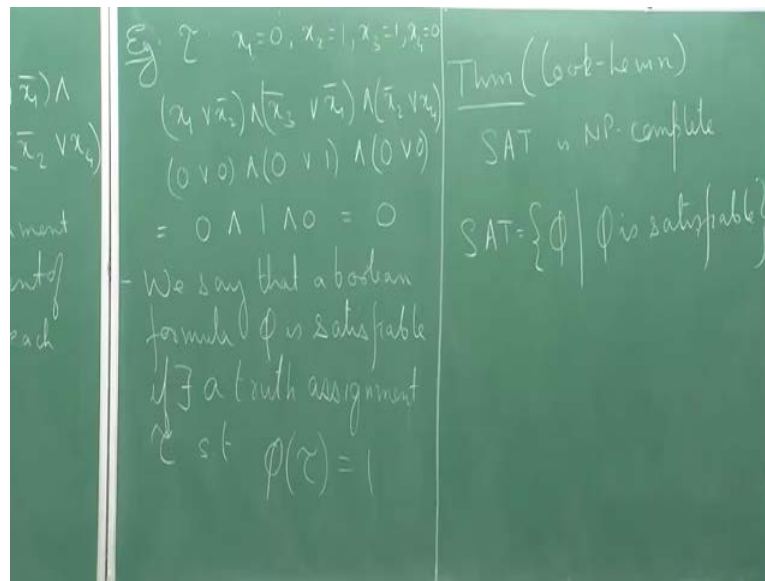 x̄₁) ∧
x̄₂ ∨ x₄)
ment
nt of
each
Eg. τ x₁=0, x₂=1, x₃=1, x₄=0
(x₁ ∨ x̄₂) ∧ (x̄₃ ∨ x̄₁) ∧ (x̄₂ ∨ x₄)
(0 ∨ 0) ∧ (0 ∨ 1) ∧ (0 ∨ 0)
= 0 ∧ 1 ∧ 0 = 0
- We say that a boolean
formula φ is satisfiable
if ∃ a truth assignment
τ s.t φ(τ) = 1
Thm (Cook-Levin)
SAT is NP-complete
SAT = {φ | φ is satisfiable}